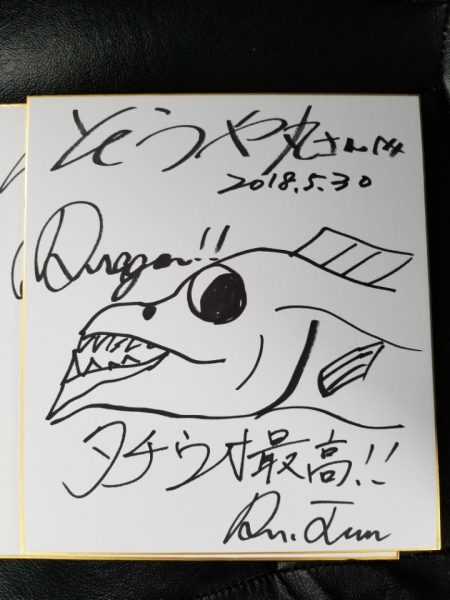 とうや丸さん江
2018.5.30
Dragon!!
タチウオ最高!!
Dr. Jun